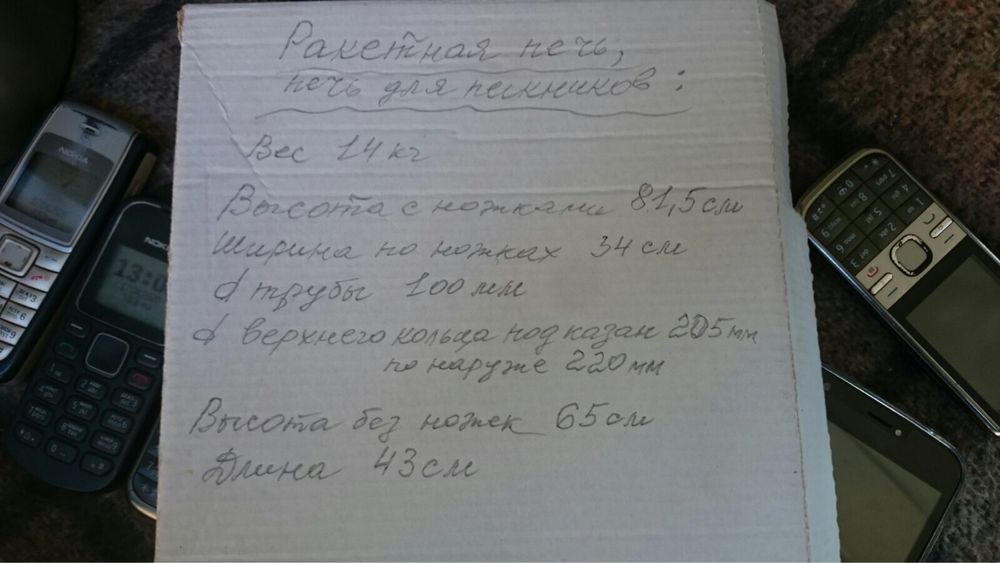 Ракетная печь,
печь для пикников:
Вес 14 кг
Высота с ножками 81,5 см
Ширина по ножках 34 см
d трубы 100 мм
d верхнего кольца под казан 205 мм
по наруже 220 мм
Высота без ножек 65 см
Длина 43 см
NOKIA
NOKIA
13:0